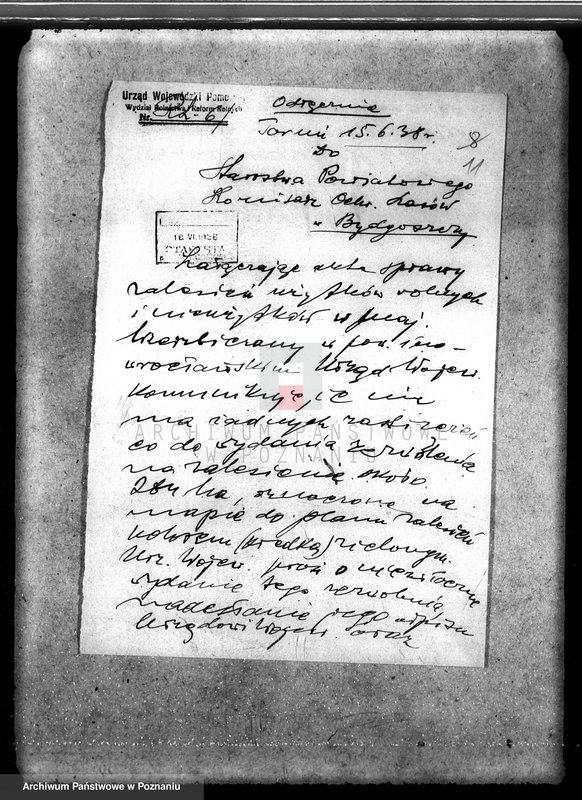 Urząd Wojewódzki Pomo
Wydział Rolnictwa i Reform Rolnych
Nr.
Odręcznie
Toruń 15.6.38r.
8
11
Do
Starostwa Powiatowego
Komisarz Ochr. Lasów
w Bydgoszczy
16 VI.1938
STAROSTA
Załączając akta sprawy
zalesień użytków rolnych
i nieużytków w maj.
Wierzbiczany w pow. ino-
wrocławskim Urząd Wojew.
komunikuje, iż nie
ma żadnych zastrzeżeń
co do wydania zezwolenia
na zalesienie około
284 ha, oznaczone na
mapie do planu zalesień
kolorem (kredką) zielonym.
Urz. Wojew. prosi o
wydanie tego zezwolenia,
nadesłanie jego odpisu
Urzędowi Wojew. oraz
ARCHIWUM PAŃSTWOWE
W POZNANIU
Archiwum Państwowe w Poznaniu